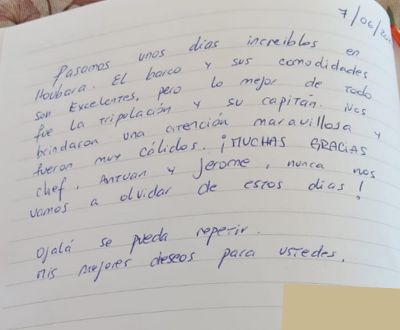 7/06/20
Pasamos unos dias increibles en
Houbara. El barco y sus comodidades
son Excelentes, pero lo mejor de todo
fue la tripulación y su capitán. Nos
brindaron una atención maravillosa y
fueron muy cálidos. ¡MUCHAS GRACIAS
chef, Antuan y Jerome, nunca nos
vamos a olvidar de estos dias!
Ojalá se pueda repetir.
Mis mejores deseos para ustedes.